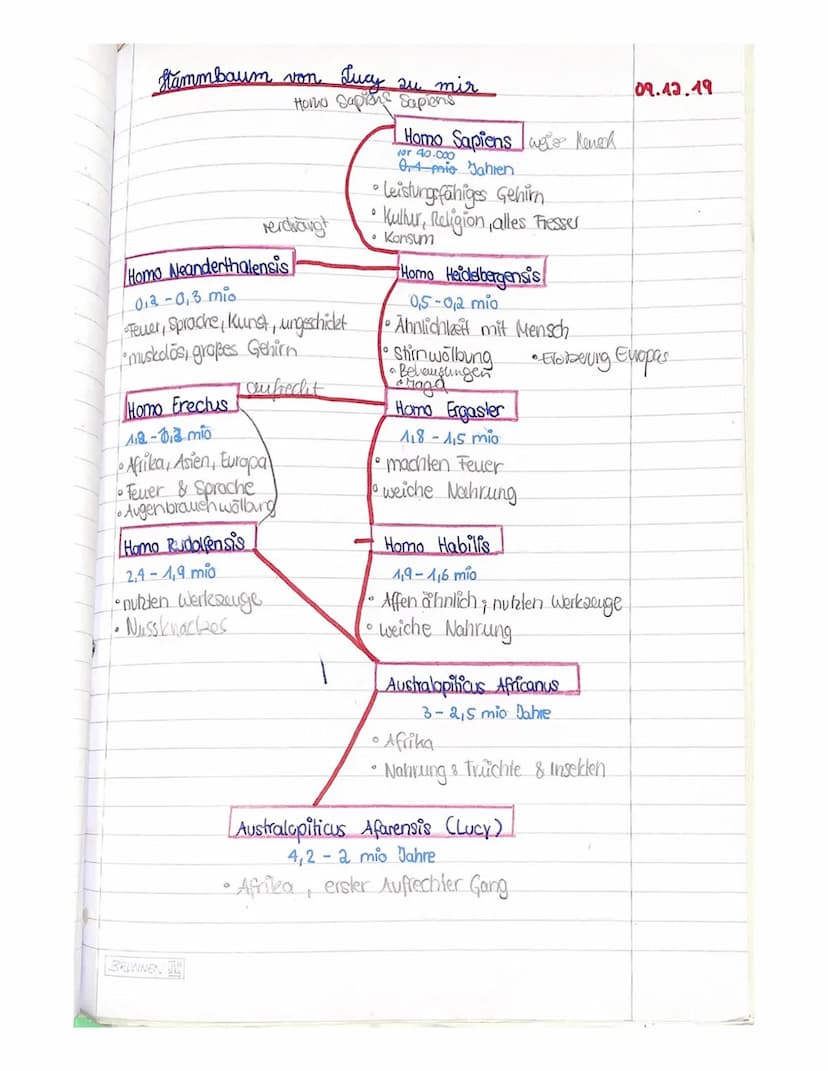 Stammbaum von Lucy zu mir
09.12.19
Homo Sapiens Sapiens
Homo Sapiens
vor 40.000
0,1 mio Jahren
• Leistungsfähiges Gehirn
• Kultur, Religion, alles Fresser
• Konsum
verdrängt
Homo Neanderthalensis
0,2 - 0,3 mio
• Feuer, Sprache, Kunst, ungeschickt
• muskolös, großes Gehirn
Homo Heidelbergensis
0,5 - 0,2 mio
• Ähnlichkeit mit Mensch
• Stirnwölbung
• Behausungen
• Jagd
Europas
aufrecht
Homo Erectus
• Afrika, Asien, Europa
• Feuer & Sprache
• Augenbrauchwölbung
Homo Ergaster
1,8 - 1,5 mio
• machten Feuer
• weiche Nahrung
Homo Rudolfensis
2,4 - 1,9 mio
• nutzten Werkzeuge
Homo Habilis
1,9 - 1,6 mio
• Affen ähnlich, nutzten Werkzeuge
• weiche Nahrung
Australopiticus Africanus
3 - 2,5 mio Jahre
• Afrika
• Nahrung: Früchte & Insekten
Australopiticus Afarensis (Lucy)
4,2 - 2 mio Jahre
• Afrika, erster Aufrechter Gang
BRUNNEN